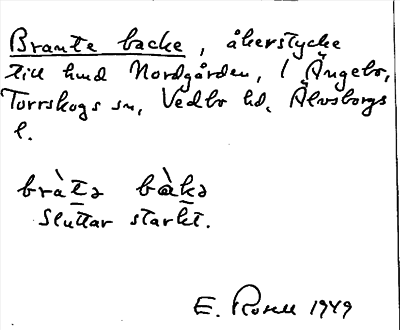 Brante backe, åkerstycke
till hmd Nordgården, i Ängebo,
Torrskogs sn, Vedbo hd, Älvsborgs
l.
bràtə bàkə
Sluttar starkt.
E. Rosell 1949